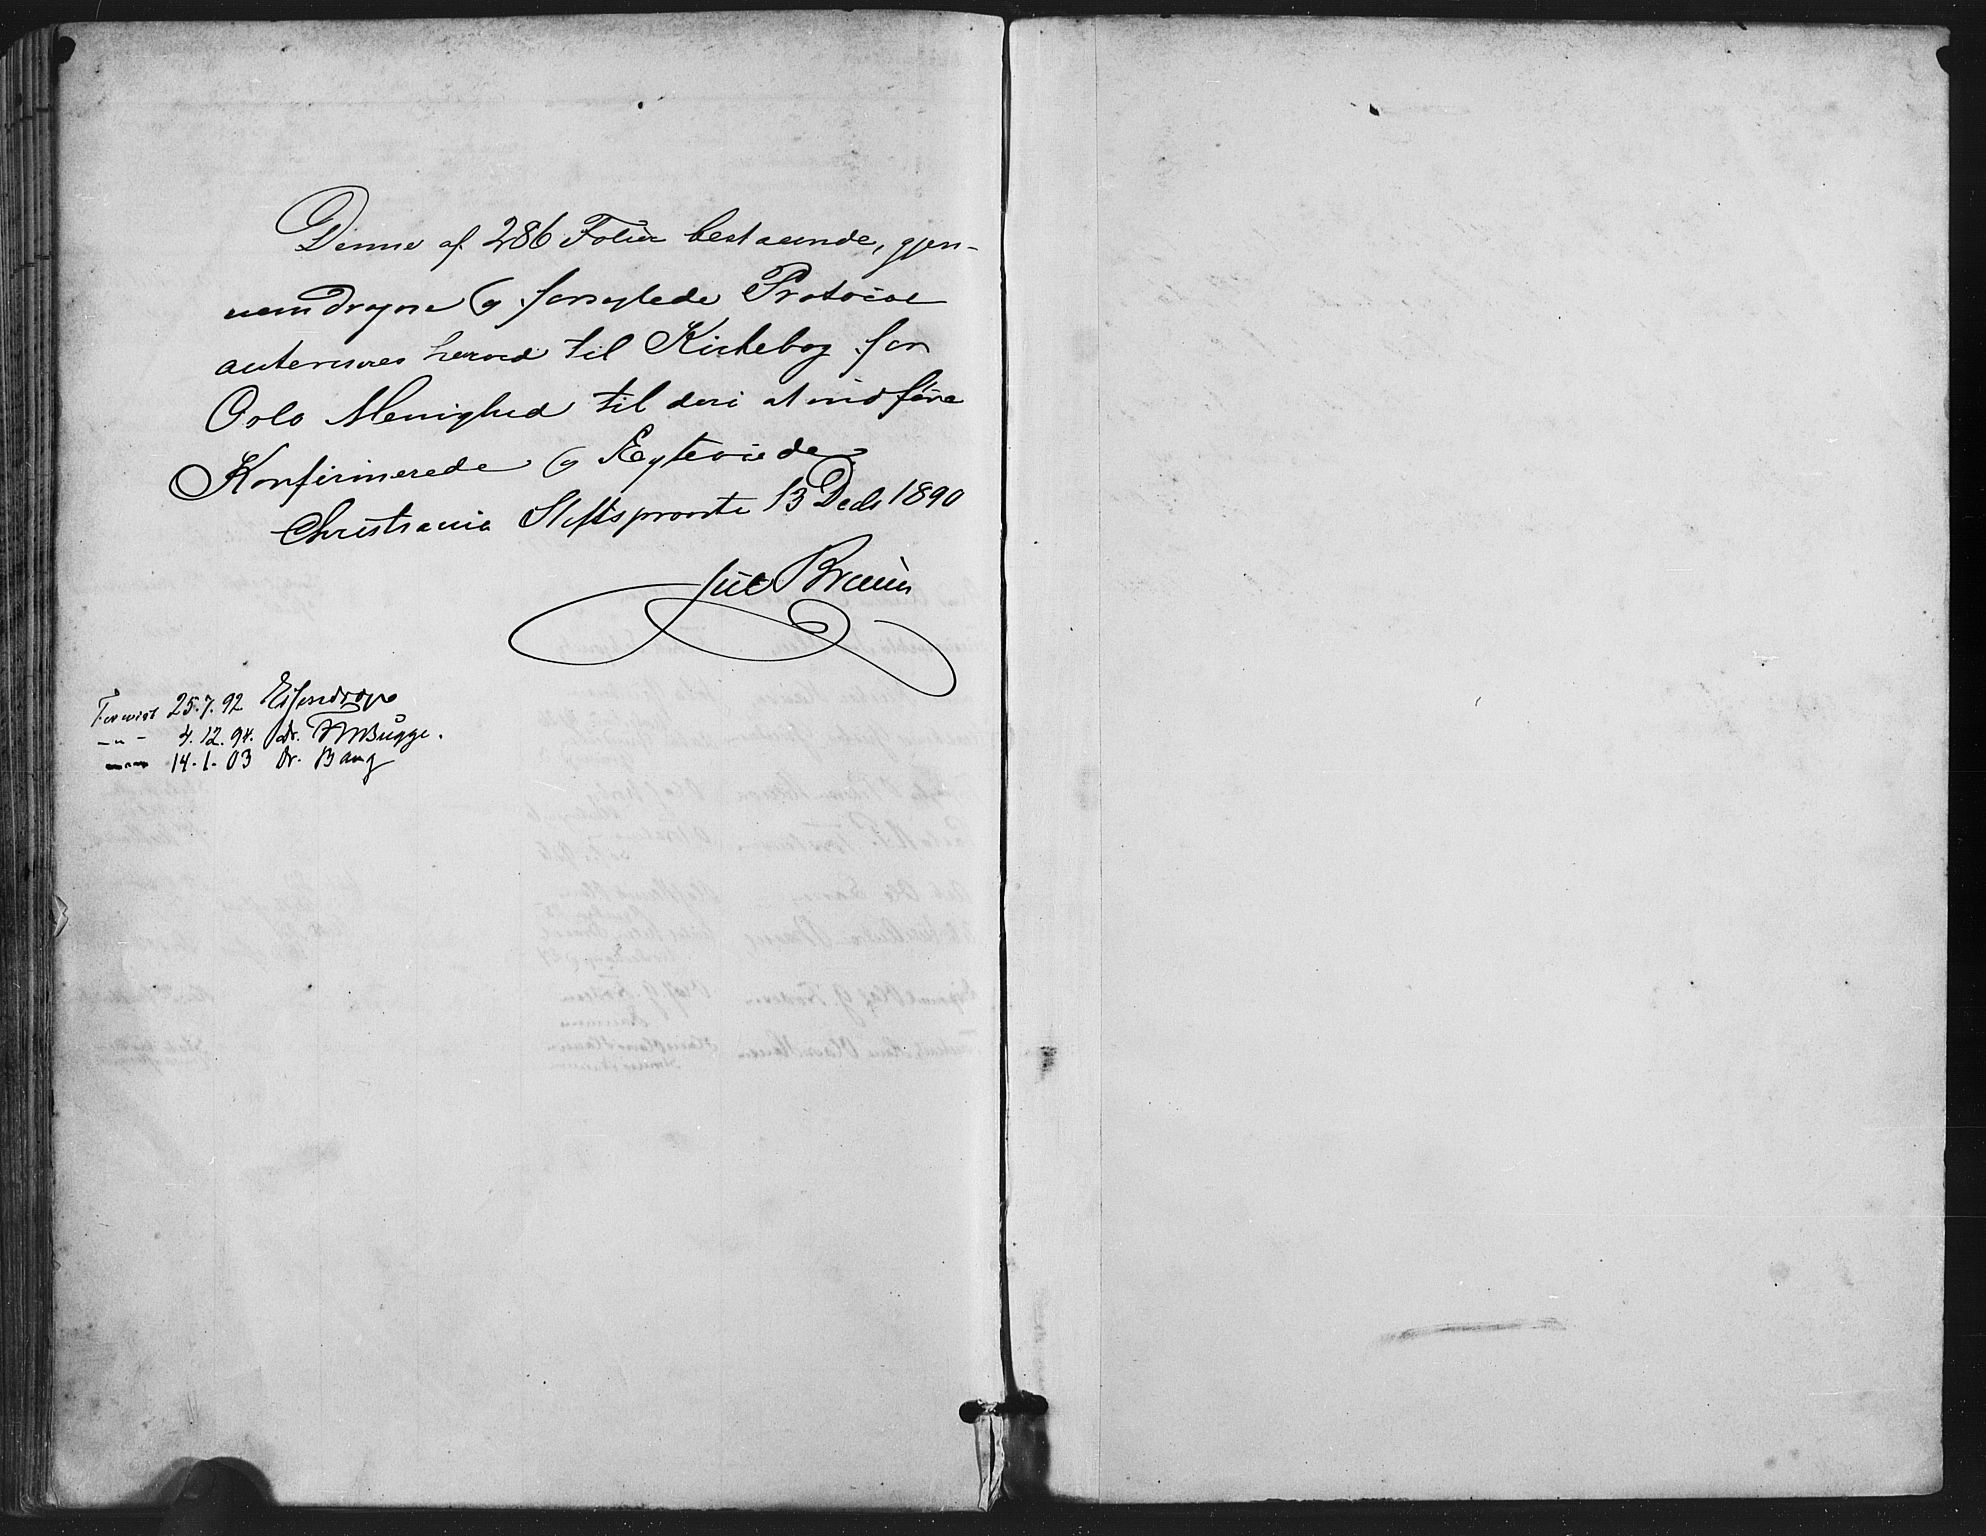 Denne af 286 Folier bestaaende, gjen-
nemdragne og forseglede Protocol
autoriseres herved til Kirkebog for
Oslo Menighed til deri at indføre
Konfirmerede og Egteviede.
Christiania Stiftsprovsti 13 Decbr 1890
Jul Bruun
Forevist 25.7.92
-"- 4.12.94. Dr. Bugge.
14.1.03 Dr. Bang